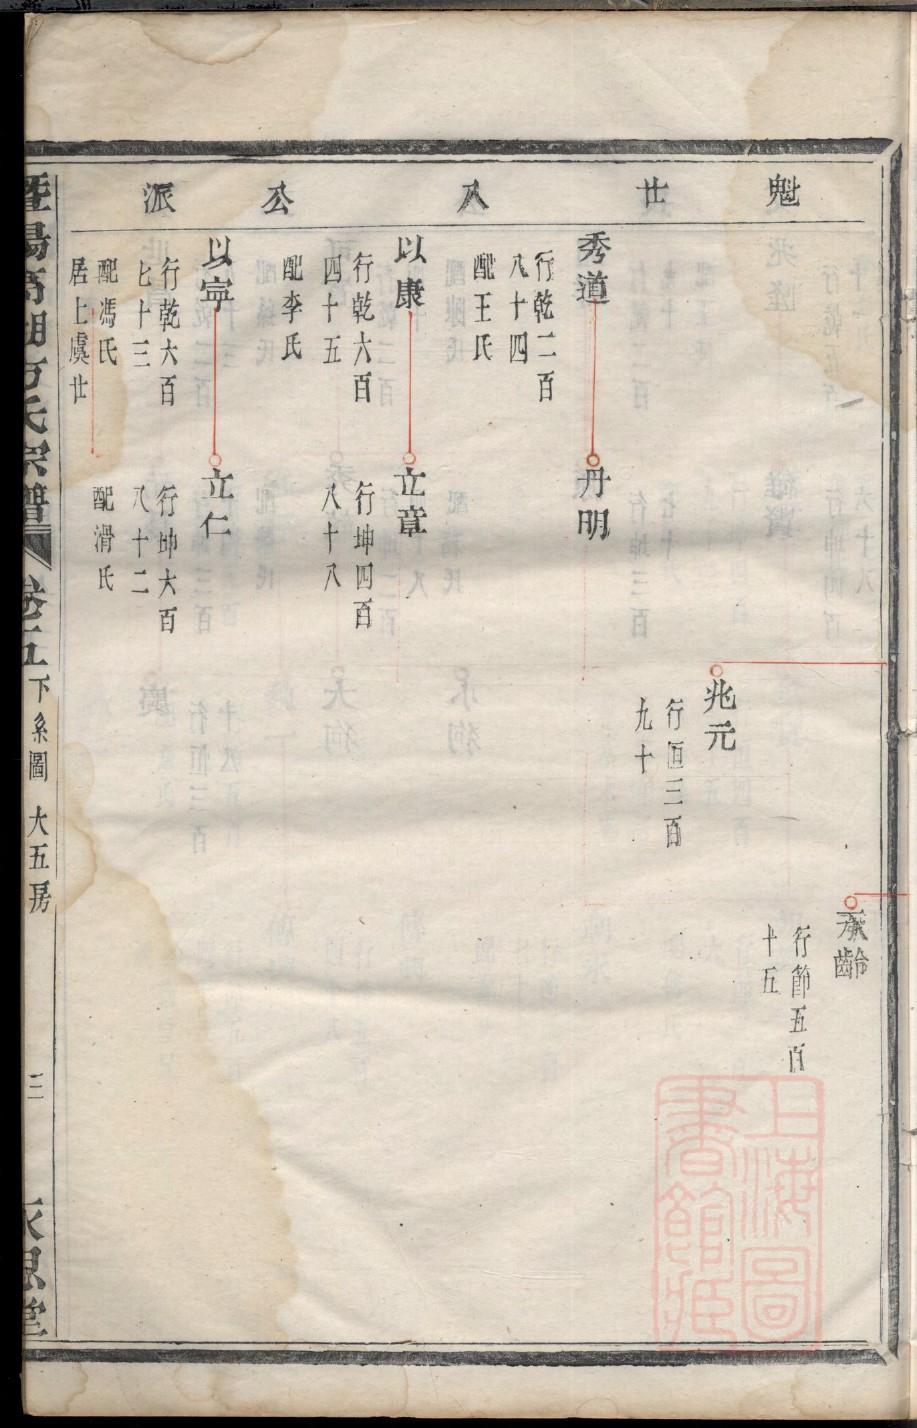 魁廿八公派
承齡
行節五百
十五
兆元
行恒三百
九十
秀道
行乾二百
八十四
配王氏
丹明
以康
行乾六百
四十五
配李氏
立章
行坤四百
八十八
以寜
行乾六百
七十三
配馮氏
居上虞廿
立仁
行坤六百
八十二
配滑氏
氏宗譜
卷五
下系圖 大五房
三
思堂
上海圖書館藏